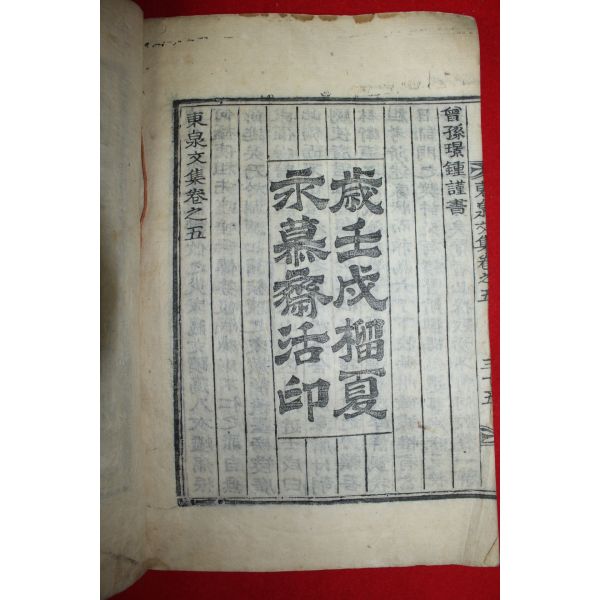 曾孫璟鍾謹書
歲壬戌榴夏
永慕齋活印
東泉文集卷之五
東泉文集卷之五
三十五